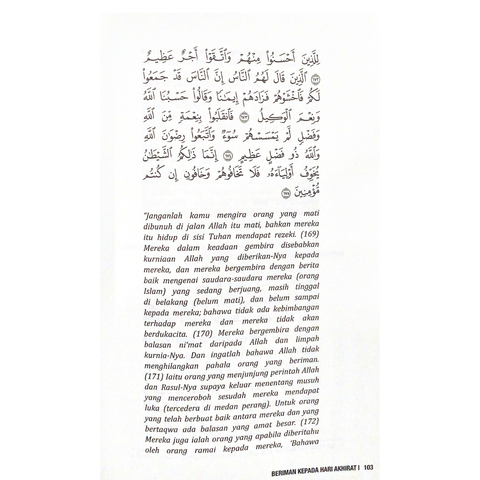 لِلَّذِينَ أَحْسَنُوا۟ مِنْهُمْ وَٱتَّقَوْا۟ أَجْرٌ عَظِيمٌ
﴿١٧٢﴾ ٱلَّذِينَ قَالَ لَهُمُ ٱلنَّاسُ إِنَّ ٱلنَّاسَ قَدْ جَمَعُوا۟
لَكُمْ فَٱخْشَوْهُمْ فَزَادَهُمْ إِيمَـٰنًا وَقَالُوا۟ حَسْبُنَا ٱللَّهُ
وَنِعْمَ ٱلْوَكِيلُ ﴿١٧٣﴾ فَٱنقَلَبُوا۟ بِنِعْمَةٍ مِّنَ ٱللَّهِ
وَفَضْلٍ لَّمْ يَمْسَسْهُمْ سُوٓءٌ وَٱتَّبَعُوا۟ رِضْوَٰنَ ٱللَّهِ
وَٱللَّهُ ذُو فَضْلٍ عَظِيمٍ ﴿١٧٤﴾ إِنَّمَا ذَٰلِكُمُ ٱلشَّيْطَـٰنُ
يُخَوِّفُ أَوْلِيَآءَهُۥ فَلَا تَخَافُوهُمْ وَخَافُونِ إِن كُنتُم
مُّؤْمِنِينَ ﴿١٧٥﴾
"Janganlah kamu mengira orang yang mati
dibunuh di jalan Allah itu mati, bahkan mereka
itu hidup di sisi Tuhan mendapat rezeki. (169)
Mereka dalam keadaan gembira disebabkan
kurniaan Allah yang diberikan-Nya kepada
mereka, dan mereka bergembira dengan berita
baik mengenai saudara-saudara mereka (orang
Islam) yang sedang berjuang, masih tinggal
di belakang (belum mati), dan belum sampai
kepada mereka; bahawa tidak ada kebimbangan
terhadap mereka dan mereka tidak akan
berdukacita. (170) Mereka bergembira dengan
balasan ni'mat daripada Allah dan limpah
kurnia-Nya. Dan ingatlah bahawa Allah tidak
menghilangkan pahala orang yang beriman.
(171) Iaitu orang yang menjunjung perintah Allah
dan Rasul-Nya supaya keluar menentang musuh
yang menceroboh sesudah mereka mendapat
luka (tercedera di medan perang). Untuk orang
yang telah berbuat baik antara mereka dan yang
bertaqwa ada balasan yang amat besar. (172)
Mereka juga ialah orang yang apabila diberitahu
oleh orang ramai kepada mereka, 'Bahawa
BERIMAN KEPADA HARI AKHIRAT I 103